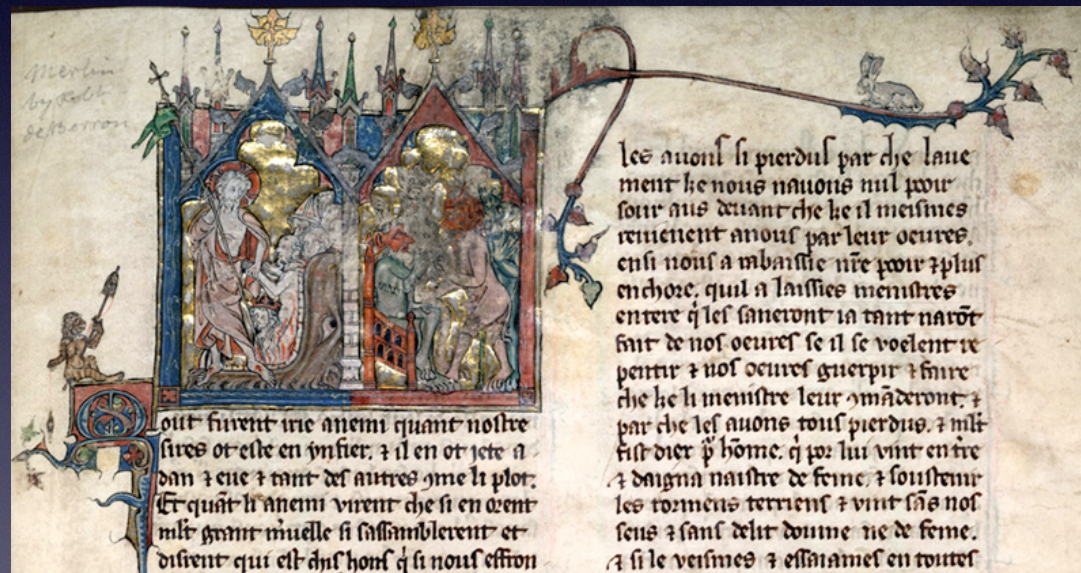 Merlin
by Robt
de Borron
out furent irie anemi quant nostre
sires ot este en ynfier. ⁊ il en ot jete a
dan ⁊ eue ⁊ tant des autres ꝯme li plot.
Et quāt li anemi virent che si en orent
mlt grant m̓uelle si sassamblerent et
disrent qui est chis hons q̇ si nous effron
les auons si pierdus par che laue
ment ke nous nauons nul pooir
sour aus deuant che ke il meismes
reuienent a nous par leur oeures.
ensi nous a rabaissie nr̄e pooir ⁊ plus
enchore. quil a laissies menistres
en tere q̇ les saueront ia tant narōt
fait de nos oeures se il se voelent re
pentir ⁊ nos oeures guerpir ⁊ faire
che ke li menistre leur ꝯmāderont. ⁊
par che les auons tous pierdus. ⁊ mlt
hōme. q̇ por lui vint en tre
⁊ daigna naistre de feme. ⁊ soustenir
les tormens terriens ⁊ vint sās nos
seus ⁊ sans delit doume ne de feme.
⁊ si le veismes ⁊ essaiames en toutes